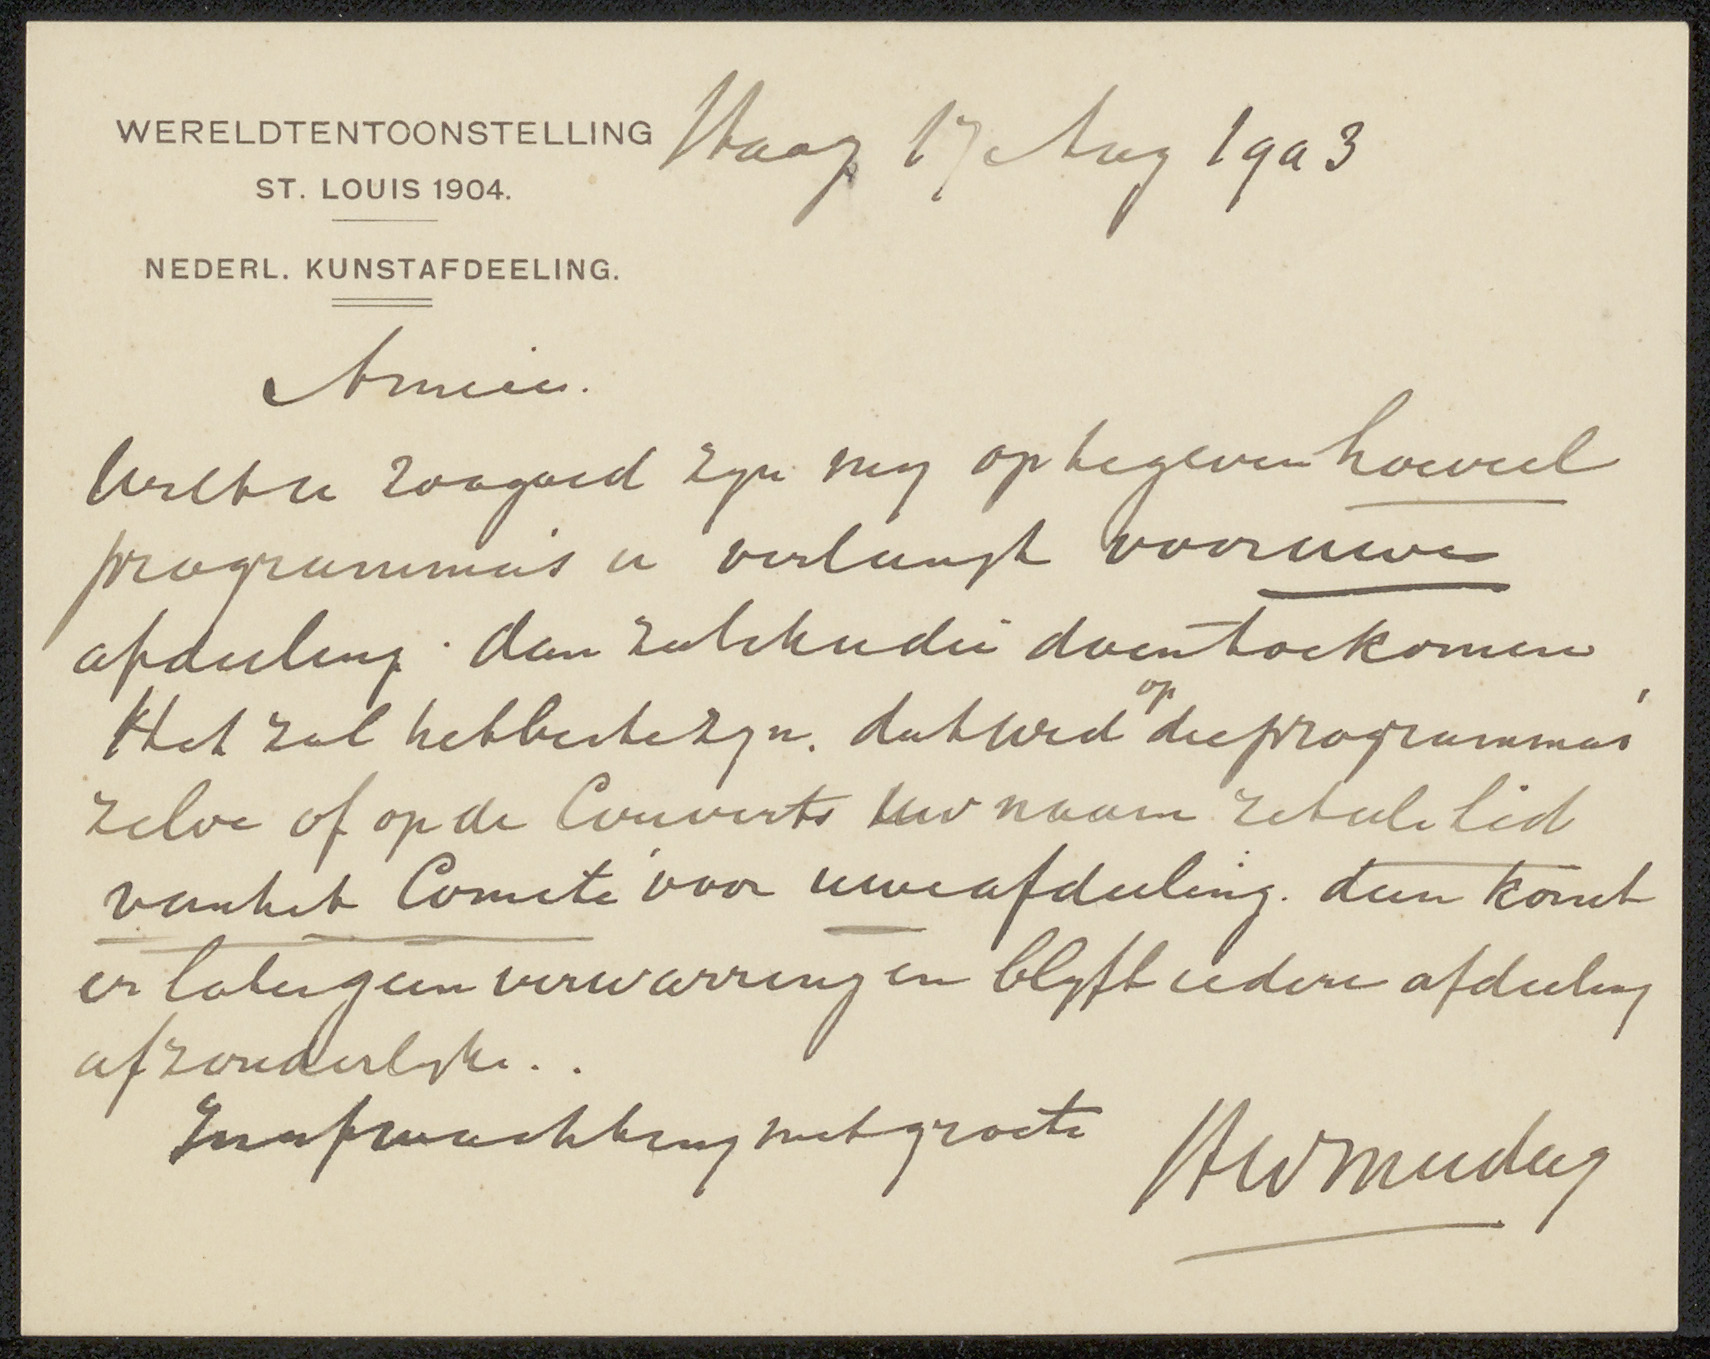 WERELDTENTOONSTELLING
ST. LOUIS 1904.
NEDERL. KUNSTAFDEELING.
Haag 17 Aug 1903
Amice.
Wilt u zoo goed zyn my optegeven hoeveel
programma's u verlangt voor uwe
afdeeling. dan zal ik u die doen toekomen
Het zal het beste zyn. dat u op die programma's
zelve of op de Couverts uw naam zet als lid
van het Comité voor uwe afdeeling. dan komt
er later geen verwarring en blyft iedere afdeeling
afzonderlyke..
In afwachting met groete
HWMesdag